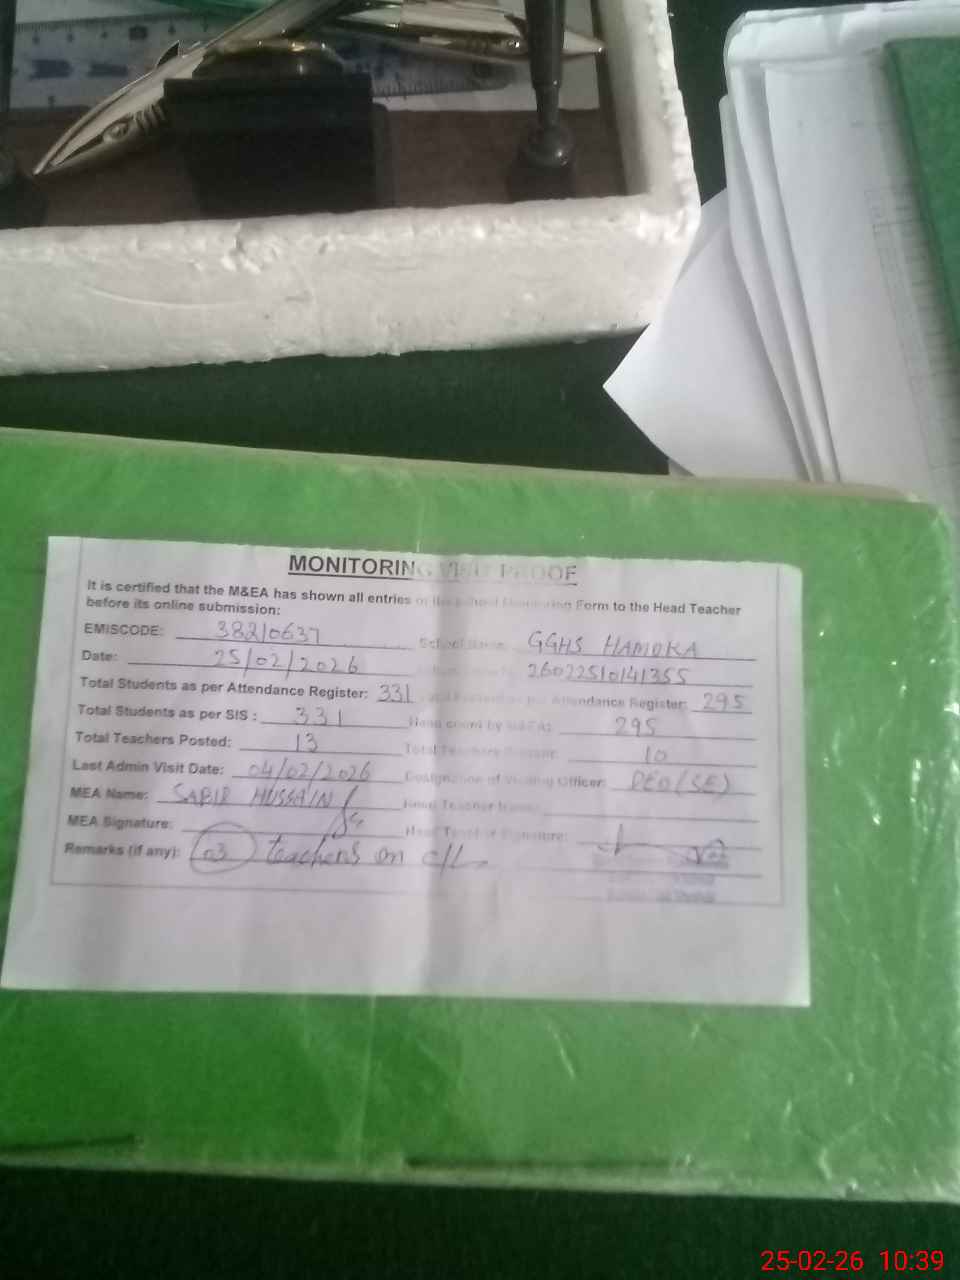 MONITORING VISIT PROOF
It is certified that the M&EA has shown all entries of the School Monitoring Form to the Head Teacher
before its online submission:
EMISCODE: 38210637 School Name: GGHS HAMOKA
Date: 25/02/2026 26022510141355
Total Students as per Attendance Register: 331 Attendance Register: 295
Total Students as per SIS : 331 Head count by MEA: 295
Total Teachers Posted: 13 Total Teachers Present: 10
Last Admin Visit Date: 04/02/2026 Designation of Visiting Officer: DEO(SE)
MEA Name: SABIR HUSSAIN Head Teacher Name:
MEA Signature: Head Teacher Signature:
Remarks (if any): 03 teachers on c/L
25-02-26 10:39